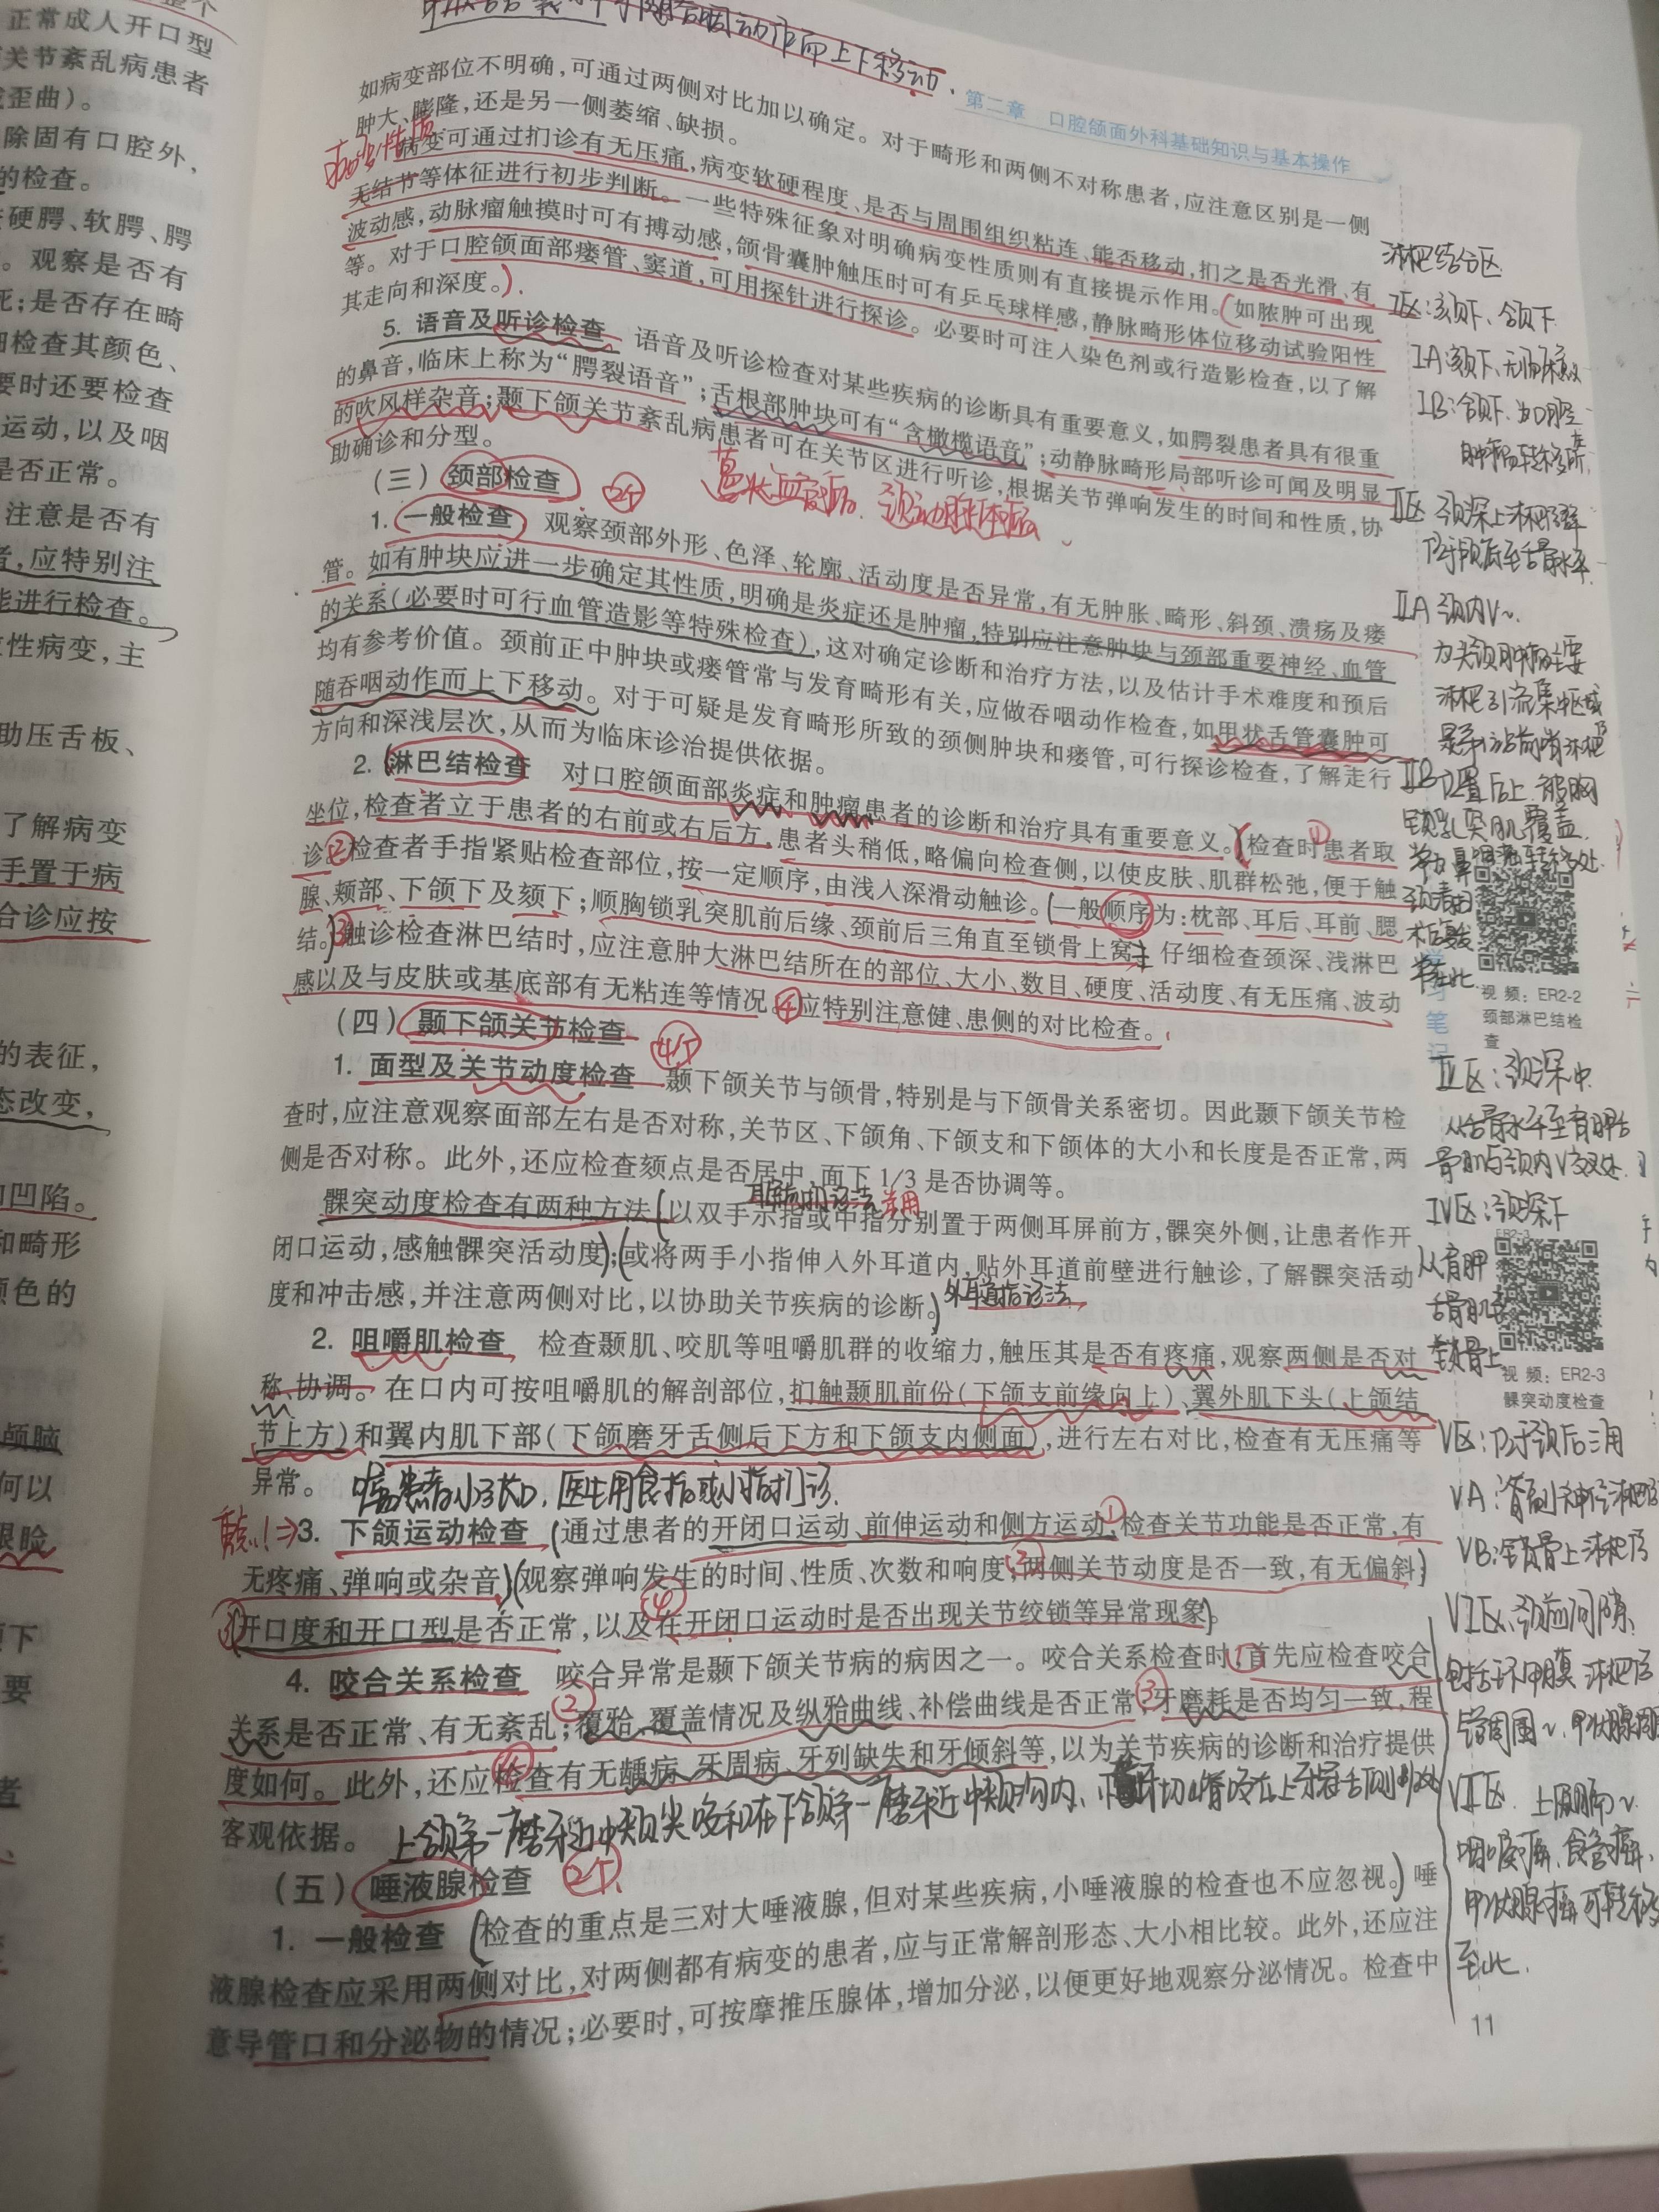 正常成人开口型
关节紊乱病患者
歪曲)。
除固有口腔外,
的检查。
硬腭、软腭、腭
。观察是否有
死;是否存在畸
检查其颜色、
要时还要检查
运动,以及咽
是否正常。
注意是否有
者,应特别注
能进行检查。
性病变,主
助压舌板、
了解病变
手置于病
合诊应按
的表征,
态改变,
凹陷。
和畸形
颜色的
颅脑
何以
眼睑
随吞咽动作而上下移动.
第二章 口腔颌面外科基础知识与基本操作
如病变部位不明确,可通过两侧对比加以确定。对于畸形和两侧不对称患者,应注意区别是一侧
肿大、膨隆,还是另一侧萎缩、缺损。
病变性质
病变可通过扪诊有无压痛,病变软硬程度、是否与周围组织粘连、能否移动,扪之是否光滑、有
无结节等体征进行初步判断。一些特殊征象对明确病变性质则有直接提示作用。如脓肿可出现
波动感,动脉瘤触摸时可有搏动感,颌骨囊肿触压时可有乒乓球样感,静脉畸形体位移动试验阳性
等。对于口腔颌面部瘘管、窦道,可用探针进行探诊。必要时可注入染色剂或行造影检查,以了解
其走向和深度。
5. 语音及听诊检查 语音及听诊检查对某些疾病的诊断具有重要意义,如腭裂患者具有很重
的鼻音,临床上称为“腭裂语音”;舌根部肿块可有“含橄榄语音”;动静脉畸形局部听诊可闻及明显
的吹风样杂音;颞下颌关节紊乱病患者可在关节区进行听诊,根据关节弹响发生的时间和性质,协
助确诊和分型。
蔓状血管瘤、颈动脉体瘤
(三)颈部检查 2个
1. 一般检查 观察颈部外形、色泽、轮廓、活动度是否异常,有无肿胀、畸形、斜颈、溃疡及瘘
管。如有肿块应进一步确定其性质,明确是炎症还是肿瘤,特别应注意肿块与颈部重要神经、血管
的关系(必要时可行血管造影等特殊检查),这对确定诊断和治疗方法,以及估计手术难度和预后
均有参考价值。颈前正中肿块或瘘管常与发育畸形有关,应做吞咽动作检查,如甲状舌管囊肿可
随吞咽动作而上下移动。对于可疑是发育畸形所致的颈侧肿块和瘘管,可行探诊检查,了解走行
方向和深浅层次,从而为临床诊治提供依据。
2. 淋巴结检查 对口腔颌面部炎症和肿瘤患者的诊断和治疗具有重要意义。(检查时①患者取
坐位,检查者立于患者的右前或右后方,患者头稍低,略偏向检查侧,以使皮肤、肌群松弛,便于触
诊。②检查者手指紧贴检查部位,按一定顺序,由浅入深滑动触诊。(一般顺序为:枕部、耳后、耳前、腮
腺、颊部、下颌下及颏下;顺胸锁乳突肌前后缘、颈前后三角直至锁骨上窝,仔细检查颈深、浅淋巴
结。)③触诊检查淋巴结时,应注意肿大淋巴结所在的部位、大小、数目、硬度、活动度、有无压痛、波动
感以及与皮肤或基底部有无粘连等情况。④应特别注意健、患侧的对比检查。
(四)颞下颌关节检查 4个
1. 面型及关节动度检查 颞下颌关节与颌骨,特别是与下颌骨关系密切。因此颞下颌关节检
查时,应注意观察面部左右是否对称,关节区、下颌角、下颌支和下颌体的大小和长度是否正常,两
侧是否对称。此外,还应检查颏点是否居中,面下 1/3 是否协调等。
耳屏前扪诊法 常用
髁突动度检查有两种方法(以双手示指或中指分别置于两侧耳屏前方,髁突外侧,让患者作开
闭口运动,感触髁突活动度);(或将两手小指伸入外耳道内,贴外耳道前壁进行触诊,了解髁突活动
度和冲击感,并注意两侧对比,以协助关节疾病的诊断。)外耳道指诊法
2. 咀嚼肌检查 检查颞肌、咬肌等咀嚼肌群的收缩力,触压其是否有疼痛,观察两侧是否对
称、协调。在口内可按咀嚼肌的解剖部位,扪触颞肌前份(下颌支前缘向上)、翼外肌下头(上颌结
节上方)和翼内肌下部(下颌磨牙舌侧后下方和下颌支内侧面),进行左右对比,检查有无压痛等
异常。嘱患者小张口,医生用食指或小指扪诊.
重点!⇒3. 下颌运动检查 (通过患者的开闭口运动、前伸运动和侧方运动,①检查关节功能是否正常,有
无疼痛、弹响或杂音;)(观察弹响发生的时间、性质、次数和响度;②两侧关节动度是否一致,有无偏斜;
③开口度和开口型是否正常,以及④在开闭口运动时是否出现关节绞锁等异常现象)。
4. 咬合关系检查 咬合异常是颞下颌关节病的病因之一。咬合关系检查时,①首先应检查咬合
关系是否正常、有无紊乱;②覆𬌗、覆盖情况及纵𬌗曲线、补偿曲线是否正常,③牙磨耗是否均匀一致,程
度如何。此外,还应④检查有无龋病、牙周病、牙列缺失和牙倾斜等,以为关节疾病的诊断和治疗提供
客观依据。
上颌第一磨牙近中颊尖咬和在下颌第一磨牙近中颊沟内、
(五)唾液腺检查 2个
1. 一般检查 (检查的重点是三对大唾液腺,但对某些疾病,小唾液腺的检查也不应忽视。)唾
液腺检查应采用两侧对比,对两侧都有病变的患者,应与正常解剖形态、大小相比较。此外,还应注
意导管口和分泌物的情况;必要时,可按摩推压腺体,增加分泌,以便更好地观察分泌情况。检查中
淋巴结分区
I区:颏下、颌下
IA:颏下、无临床意义
IB:颌下、为口腔
肿瘤转移所
II区 颈深上淋巴结群
颅底至舌骨水平
IIA 颈内V~
为头颈肿瘤主要
淋巴引流集中区域
IIB 位置后上 被胸
锁乳突肌覆盖.
视频:ER2-2
颈部淋巴结检
查
学习笔记
III区:颈深中
从舌骨水平至肩胛舌
骨肌与颈内V交叉处
IV区:颈深下
从肩胛
舌骨肌至
锁骨上
视频:ER2-3
髁突动度检查
V区:颈后三角
VA:脊副神经淋巴结
VB:锁骨上淋巴结
VI区:颈前间隙
包括环甲膜淋巴结
气管周围~、甲状腺周围
VII区 上纵隔~
咽喉癌、食管癌、
甲状腺癌可转移
至此.
11